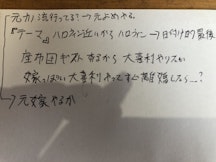 元カノ流行ってる?→元よめやる。
『テーマ』ハロウィン近いからハロウィン→日付け的最後
座布団ゲストあるから大喜利やりスが
嫁っぽい大喜利やってすぐ離婚したら…?
→元嫁やるか